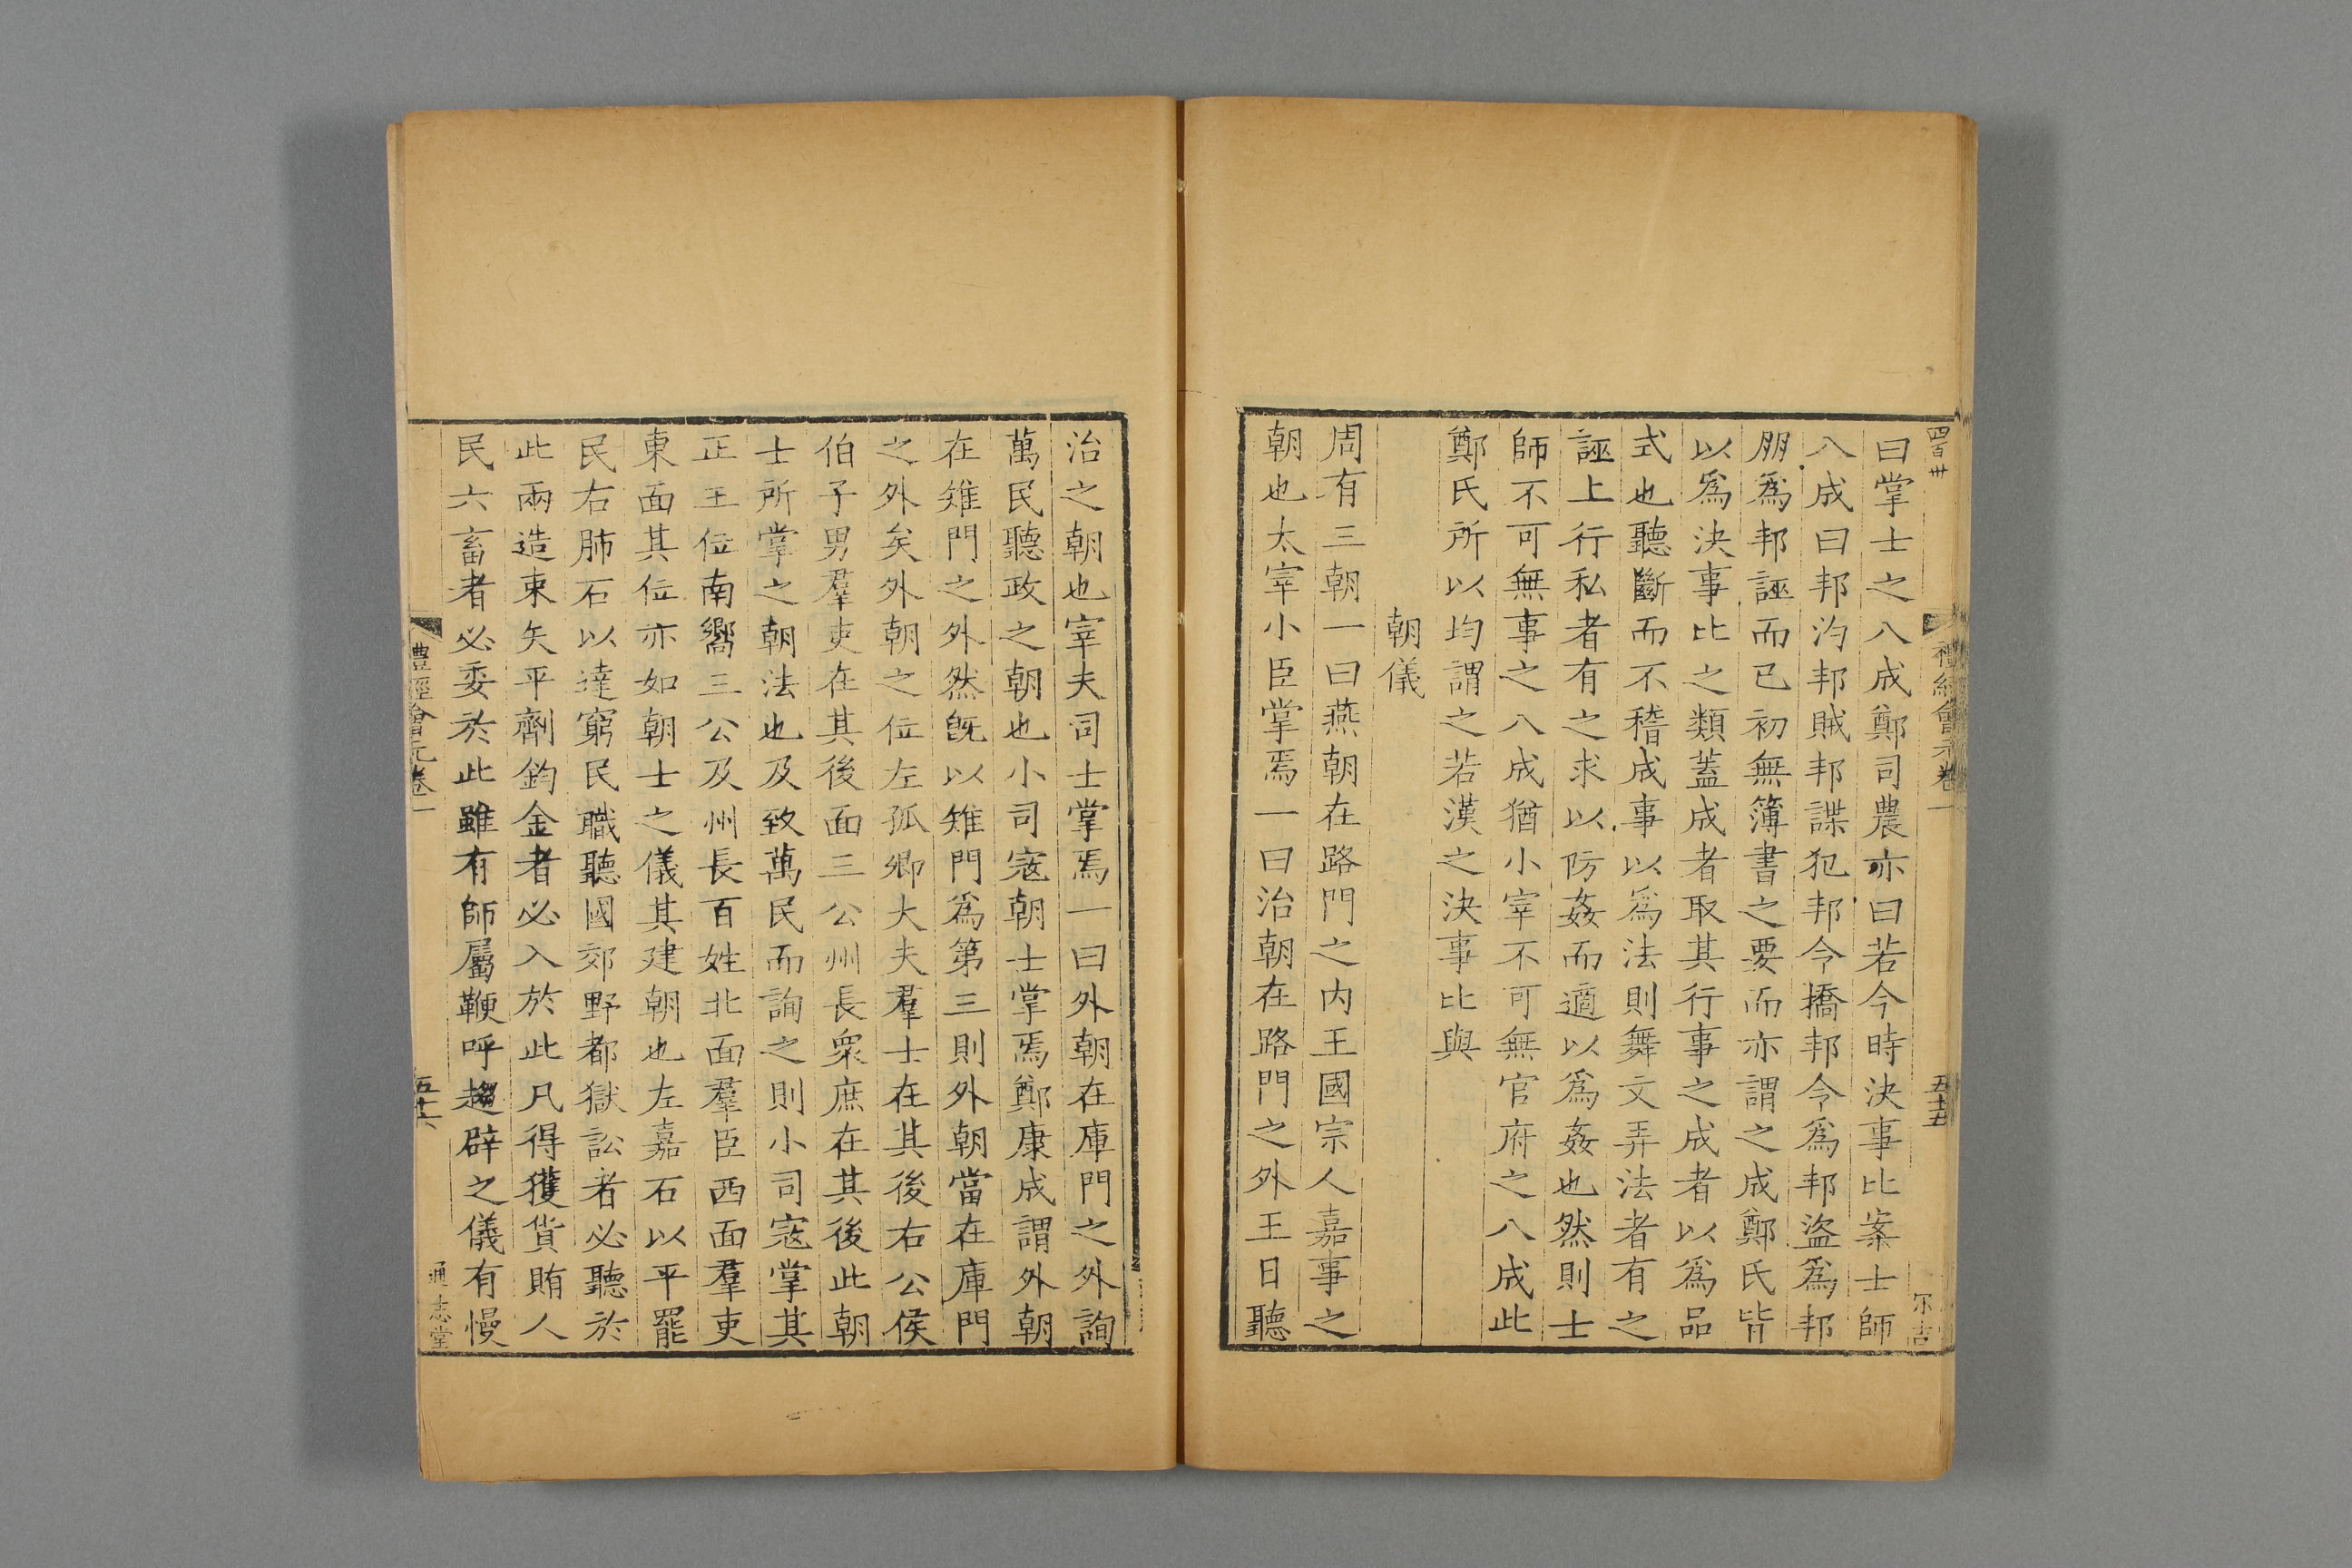 四百卅
禮經會元卷一
五十五
曰掌士之八成鄭司農亦曰若今時決事比案士師
八成曰邦汋邦賊邦諜犯邦令撟邦令爲邦盜爲邦
朋爲邦誣而已初無簿書之要而亦謂之成鄭氏皆
以爲決事比之類蓋成者取其行事之成者以爲品
式也聽斷而不稽成事以爲法則舞文弄法者有之
誣上行私者有之求以防姦而適以爲姦也然則士
師不可無事之八成猶小宰不可無官府之八成此
鄭氏所以均謂之若漢之決事比與
朝儀
周有三朝一曰燕朝在路門之內王國宗人嘉事之
朝也太宰小臣掌焉一曰治朝在路門之外王日聽
治之朝也宰夫司士掌焉一曰外朝在庫門之外詢
萬民聽政之朝也小司寇朝士掌焉鄭康成謂外朝
在雉門之外然旣以雉門爲第三則外朝當在庫門
之外矣外朝之位左孤卿大夫羣士在其後右公侯
伯子男羣吏在其後面三公州長衆庶在其後此朝
士所掌之朝法也及致萬民而詢之則小司寇掌其
正王位南嚮三公及州長百姓北面羣臣西面羣吏
東面其位亦如朝士之儀其建朝也左嘉石以平罷
民右肺石以達窮民職聽國郊野都獄訟者必聽於
此兩造束矢平劑鈞金者必入於此凡得獲貨賄人
民六畜者必委於此雖有師屬鞭呼趨辟之儀有慢
禮經會元卷一
五十六
通志堂